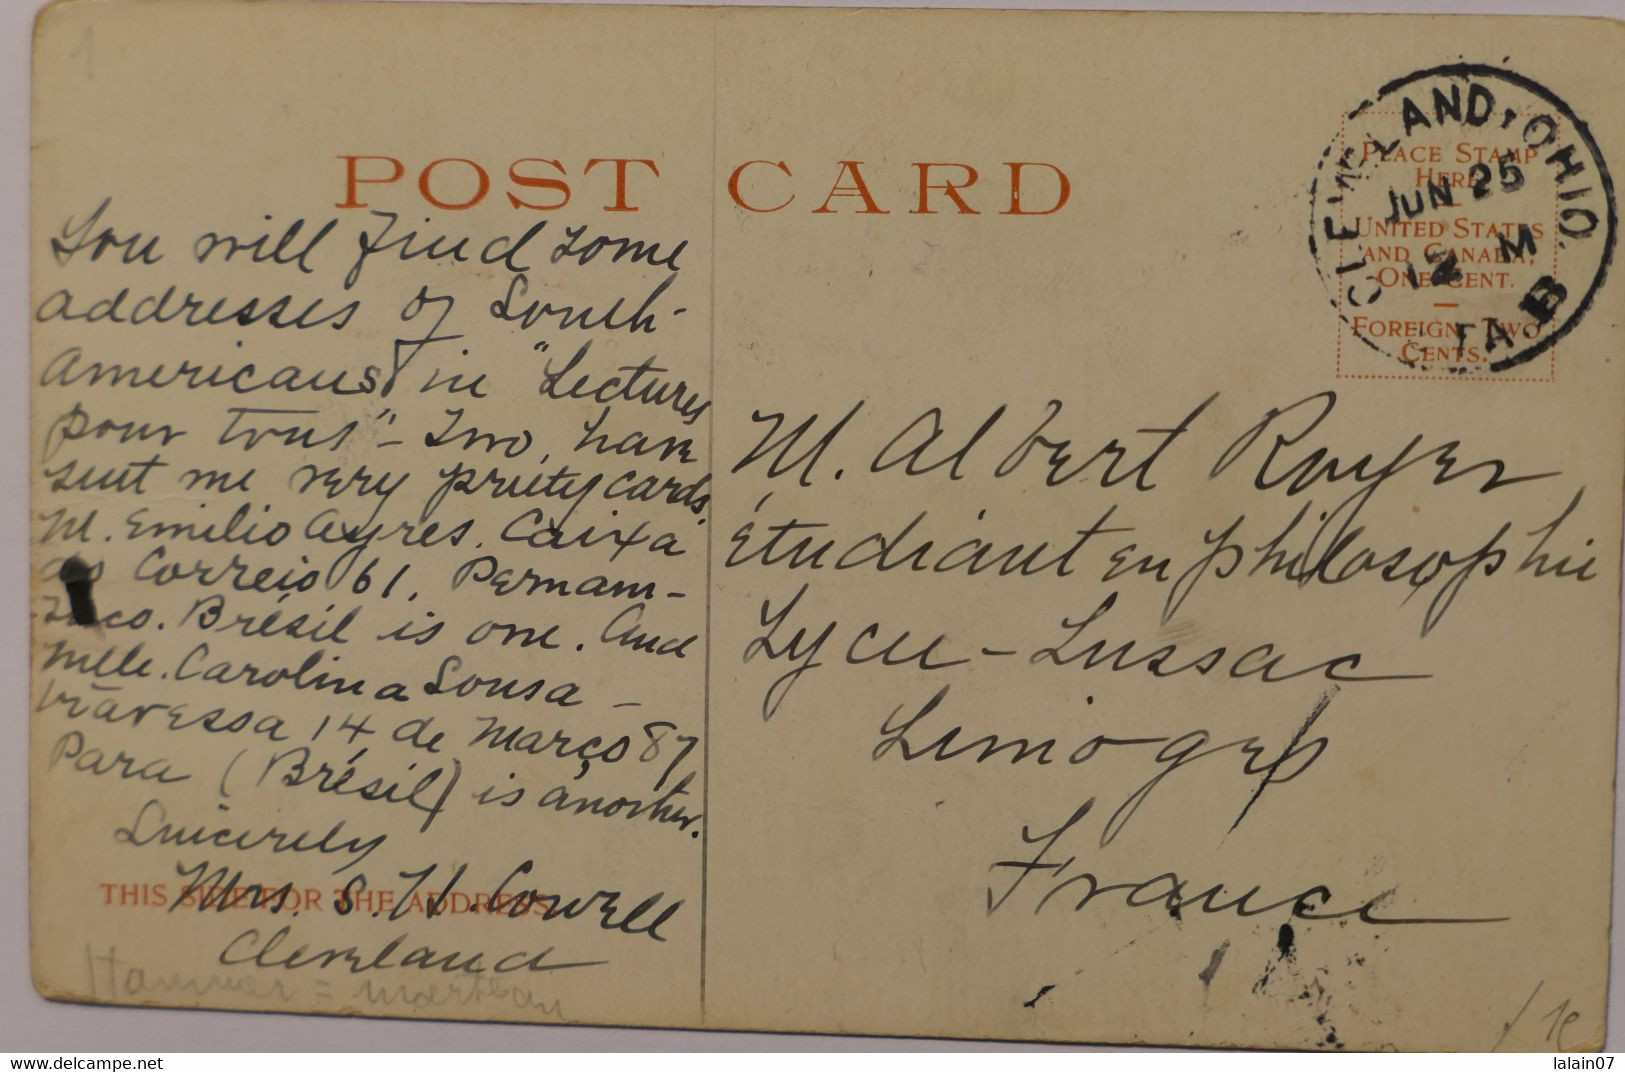 1
POST CARD
CLEVELAND, OHIO.
JUN 25
12 M
TAB
PLACE STAMP
HERE
UNITED STATES
AND CANADA,
ONE CENT.
FOREIGN, TWO
CENTS.
You will find some
addresses of South-
Americans in "Lectures
pour tous" - Two have
sent me very pretty cards.
M. Emilio Ayres. Caixa
do Correio 61, Pernam-
buco. Brésil is one. And
Mlle. Carolina Sousa -
travessa 14 de Março 87
Para (Brésil) is another.
Sincerely
Mrs. S. H. Cowell
Cleveland
THIS SIDE FOR THE ADDRESS.
Hammer = marteau
M. Albert Royer
étudiant en philosophie
Lycée - Lussac
Limoges
France
lalain07